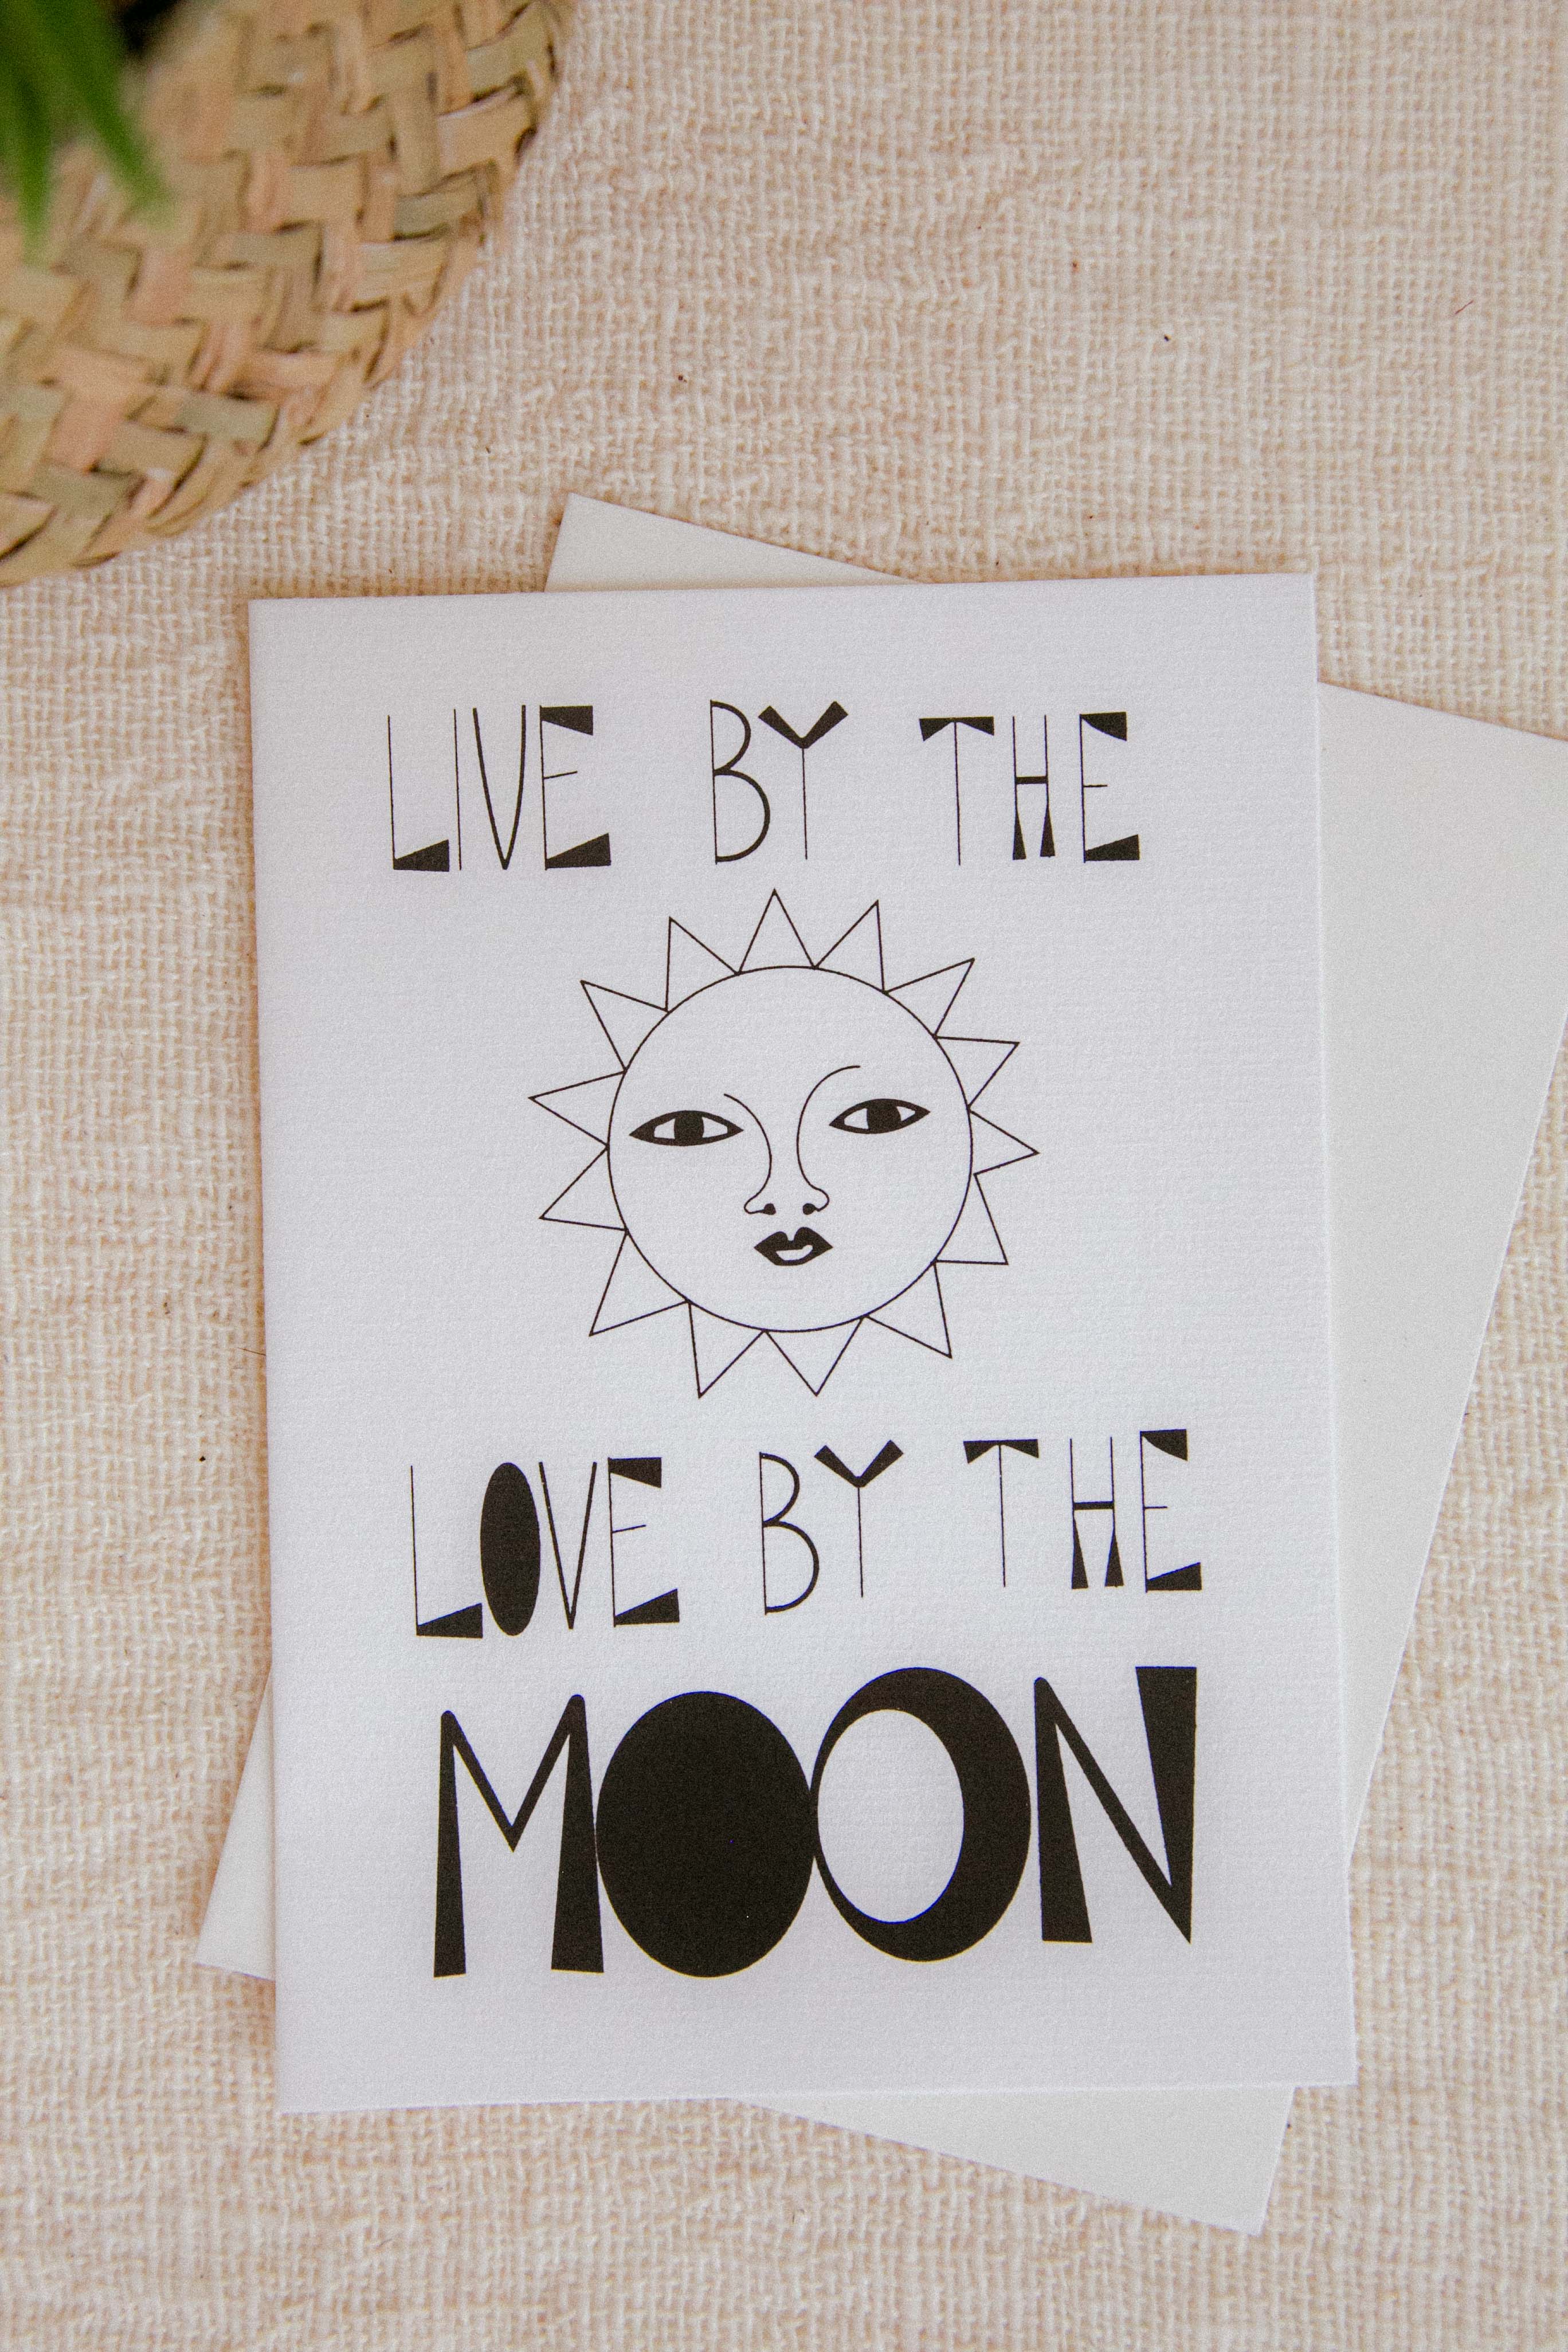 LIVE BY THE
LOVE BY THE
MOON